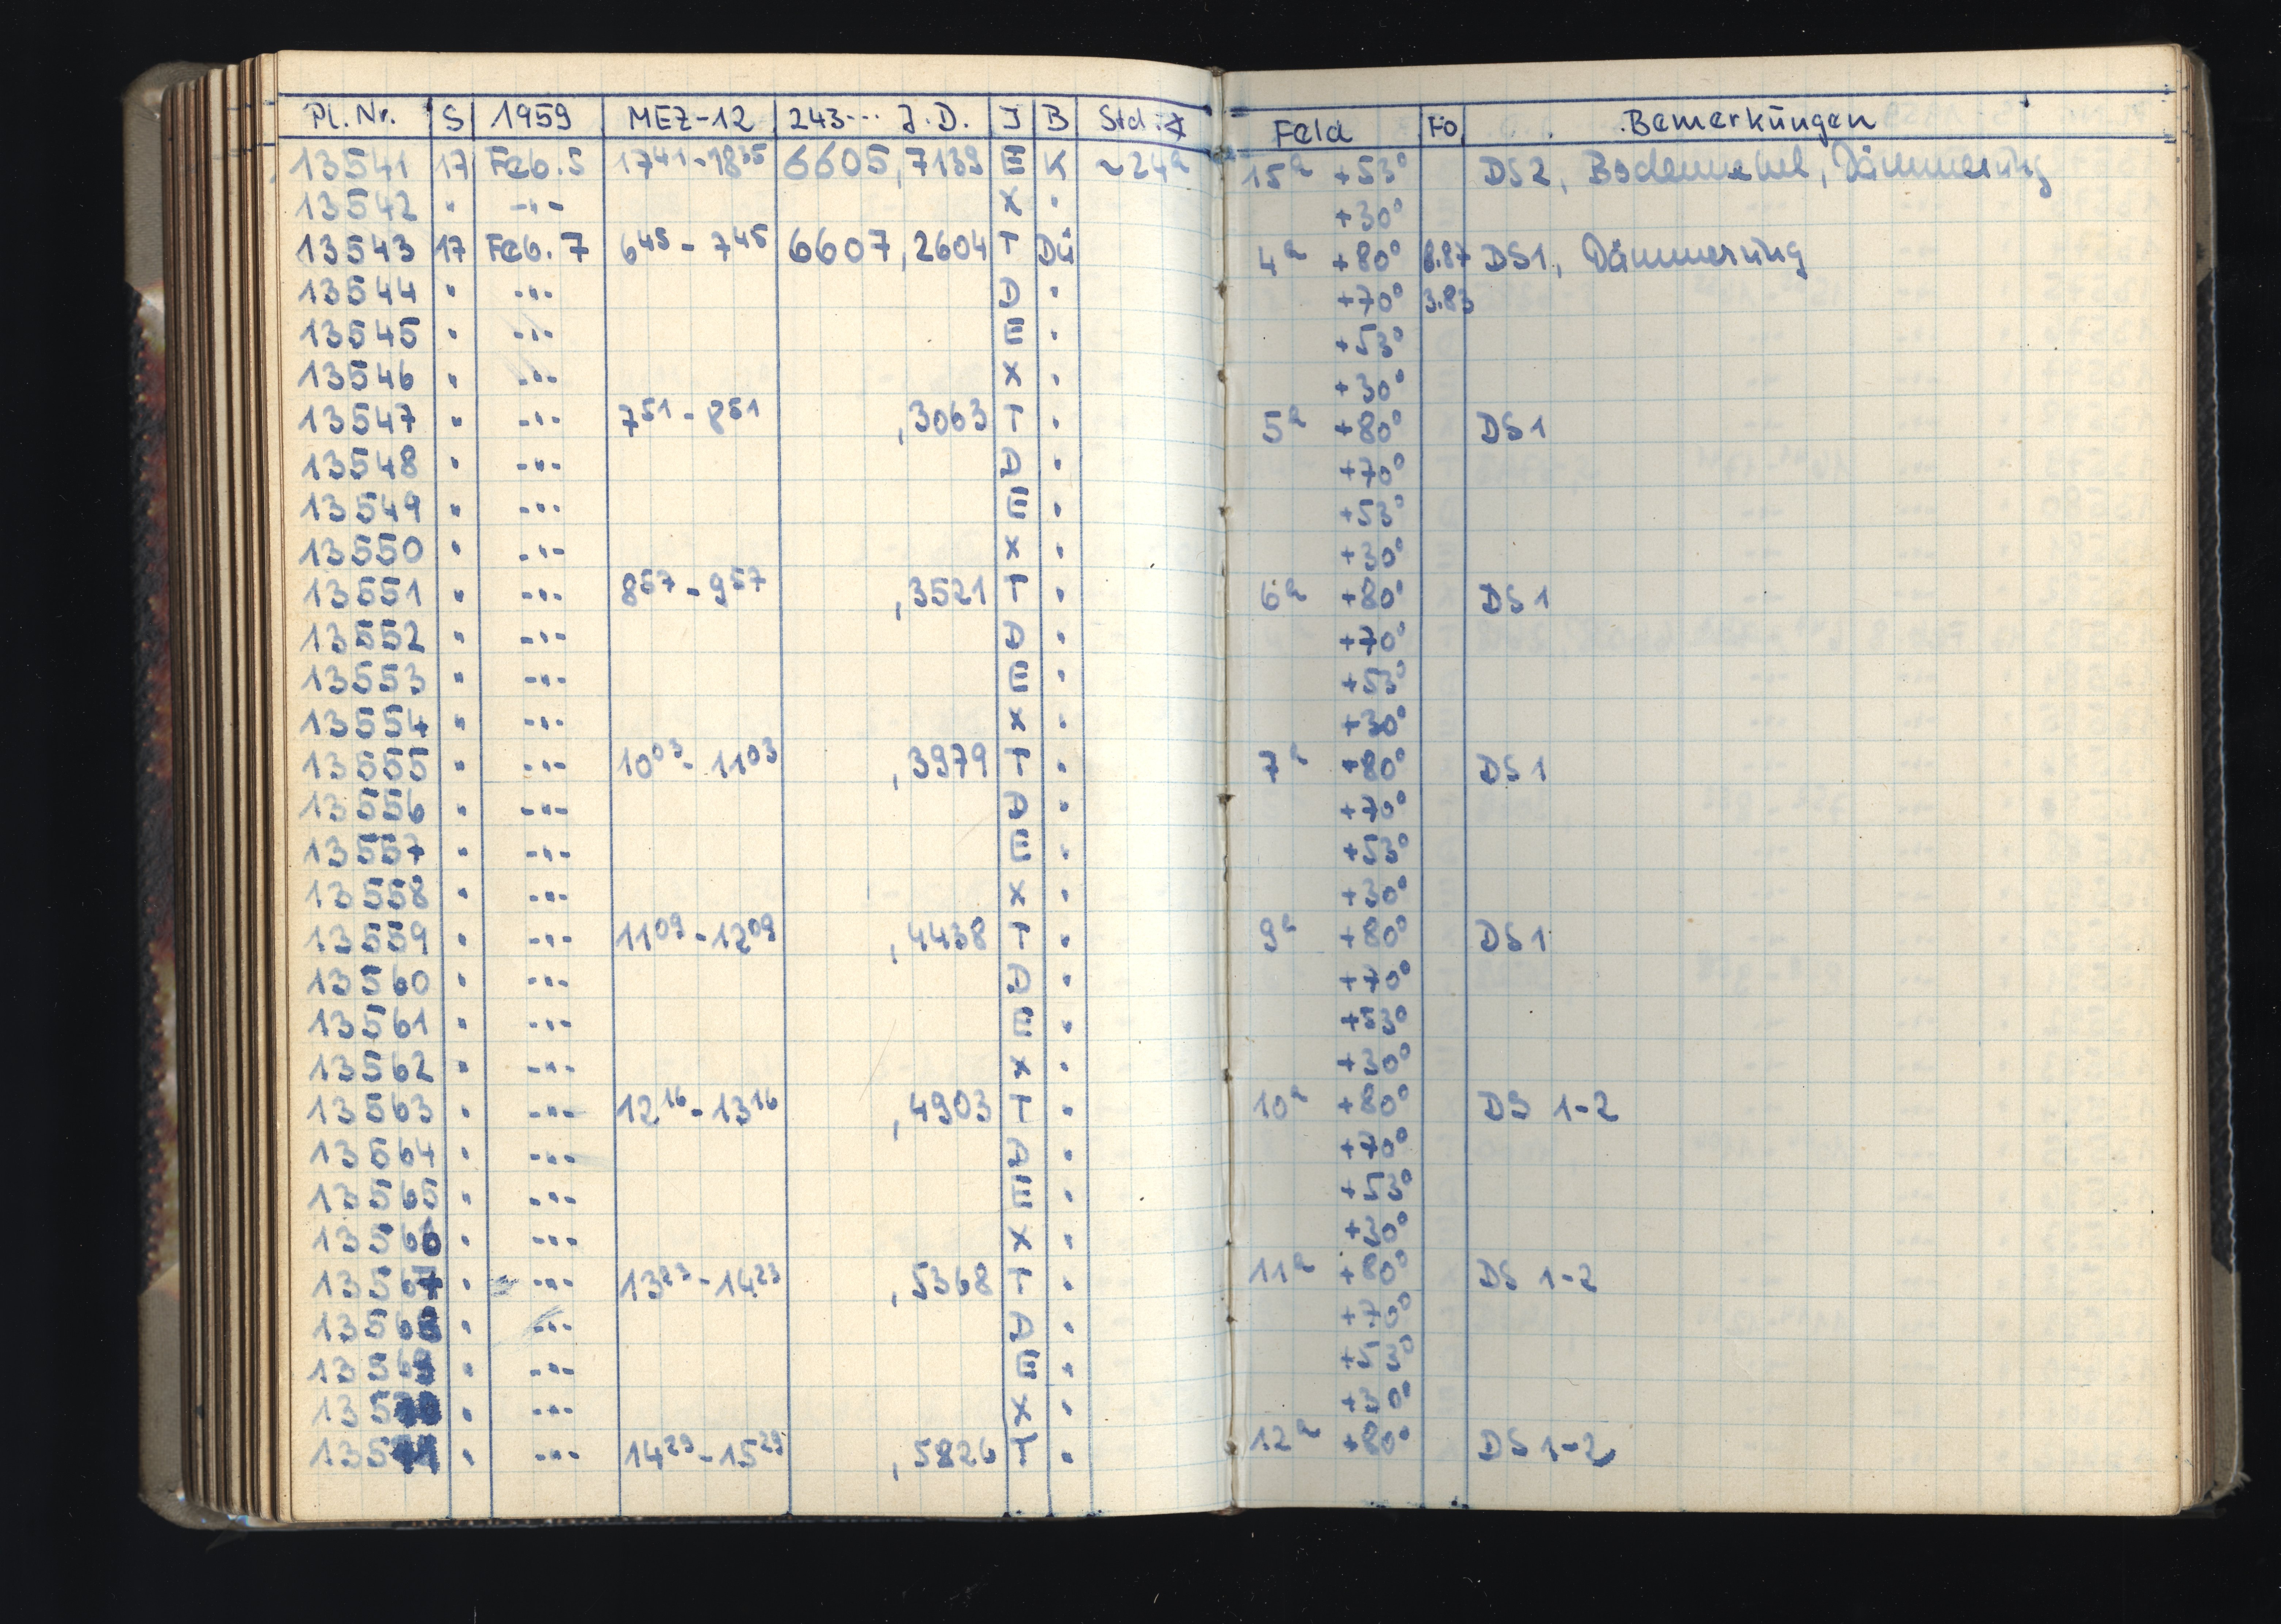 Pl. Nr. S 1959 MEZ-12 243... J.D. J B Std.∢ Feld Fo. Bemerkungen
13541 17 Feb. 5 17⁴¹-18³⁵ 6605,7139 E K ~24ᵃ 15ʰ +53° DS2, Bodennebel, Dämmerung
13542 " -"- X " +30°
13543 17 Feb. 7 6⁴⁵-7⁴⁵ 6607,2604 T Dü 4ʰ +80° DS1, Dämmerung
13544 " -"- D " +70° 3.83
13545 " -"- E " +53°
13546 " -"- X " +30°
13547 " -"- 7⁵¹-8⁵¹ ,3063 T " 5ʰ +80° DS1
13548 " -"- D " +70°
13549 " -"- E " +53°
13550 " -"- X " +30°
13551 " -"- 8⁵⁷-9⁵⁷ ,3521 T " 6ʰ +80° DS1
13552 " -"- D " +70°
13553 " -"- E " +53°
13554 " -"- X " +30°
13555 " -"- 10⁰³-11⁰³ ,3979 T " 7ʰ +80° DS1
13556 " -"- D " +70°
13557 " -"- E " +53°
13558 " -"- X " +30°
13559 " -"- 11⁰⁹-12⁰⁹ ,4438 T " 9ʰ +80° DS1
13560 " -"- D " +70°
13561 " -"- E " +53°
13562 " -"- X " +30°
13563 " -"- 12¹⁶-13¹⁶ ,4903 T " 10ʰ +80° DS 1-2
13564 " -"- D " +70°
13565 " -"- E " +53°
13566 " -"- X " +30°
13567 " -"- 13²³-14²³ ,5368 T " 11ʰ +80° DS 1-2
13568 " -"- D " +70°
13569 " -"- E " +53°
13570 " -"- X " +30°
13571 " -"- 14²⁹-15²⁹ ,5826 T " 12ʰ +80° DS 1-2